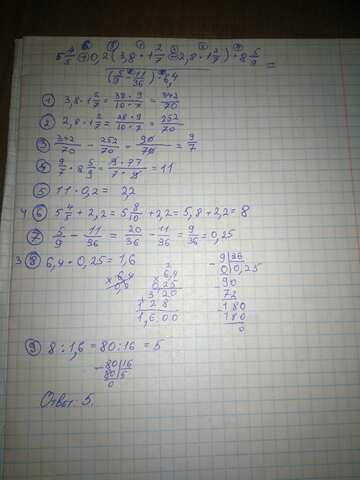 5 4/5 + 0,2 (3,8 · 1 2/7 - 2,8 · 1 2/7) · 8 5/9
(5/9 - 11/36) · 6,4 =
① 3,8 · 1 2/7 = 38 · 9 / 10 · 7 = 342/70
② 2,8 · 1 2/7 = 28 · 9 / 10 · 7 = 252/70
③ 342/70 - 252/70 = 90/70 = 9/7
④ 9/7 · 8 5/9 = 9 · 77 / 7 · 9 = 11
⑤ 11 · 0,2 = 2,2
4 ⑥ 5 4/5 + 2,2 = 5 8/10 + 2,2 = 5,8 + 2,2 = 8
⑦ 5/9 - 11/36 = 20/36 - 11/36 = 9/36 = 0,25
3 ⑧ 6,4 · 0,25 = 1,6
x 6,4
0,25
320
+ 128
1,600
9 | 36
0 | 0,25
90
72
180
180
0
⑨ 8 : 1,6 = 80 : 16 = 5
- 80 | 16
80 | 5
0
Ответ 5.